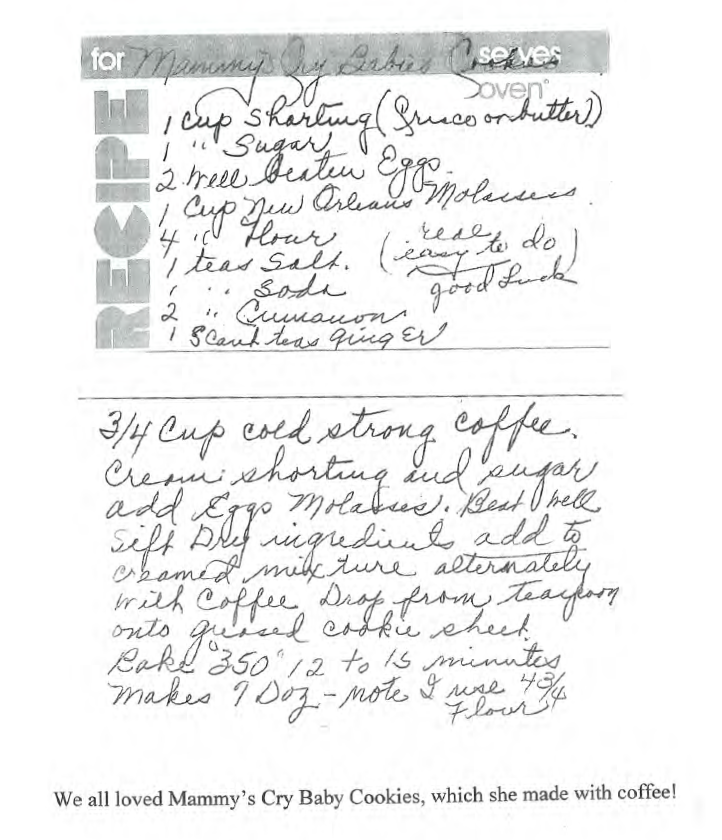 for Mammy's Cry Babies Cookies serves
oven°
RECIPE
1 cup shorting (Crisco or butter))
1 " Sugar
2 Well beaten Eggs.
1 Cup New Orleans Molasses.
4 " Flour (real easy to do)
1 teas Salt. good Luck
1 " Soda
2 " Cinnamon
1 Scant teas ginger
3/4 Cup cold strong coffee.
Cream shorting and sugar
add Eggs Molasses. Beat well
Sift Dry ingredients add to
creamed mixture alternately
with Coffee Drop from teaspoon
onto greased cookie sheet
Bake "350" 12 to 15 minutes
Makes 9 Doz - note I use 4 3/4
Flour
We all loved Mammy's Cry Baby Cookies, which she made with coffee!